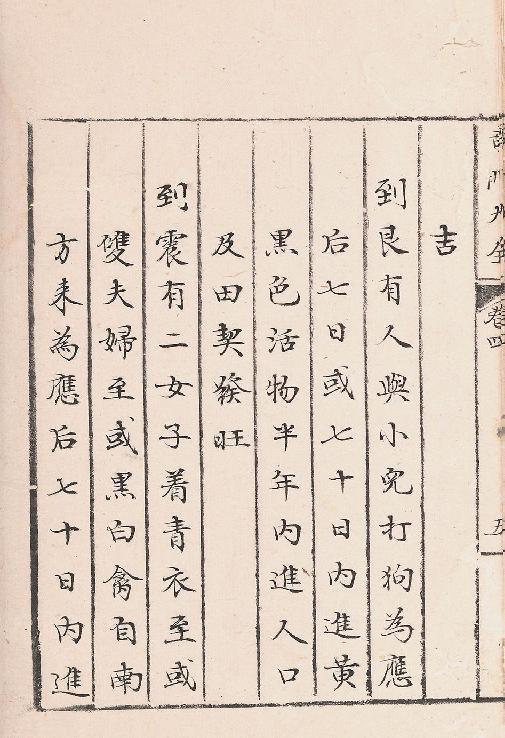 卷四
五
吉
到艮有人與小兒打狗為應
后七日或七十日内進黃
黑色活物半年内進人口
及田契發旺
到震有二女子着青衣至或
雙夫婦至或黑白禽自南
方来為應后七十日内進